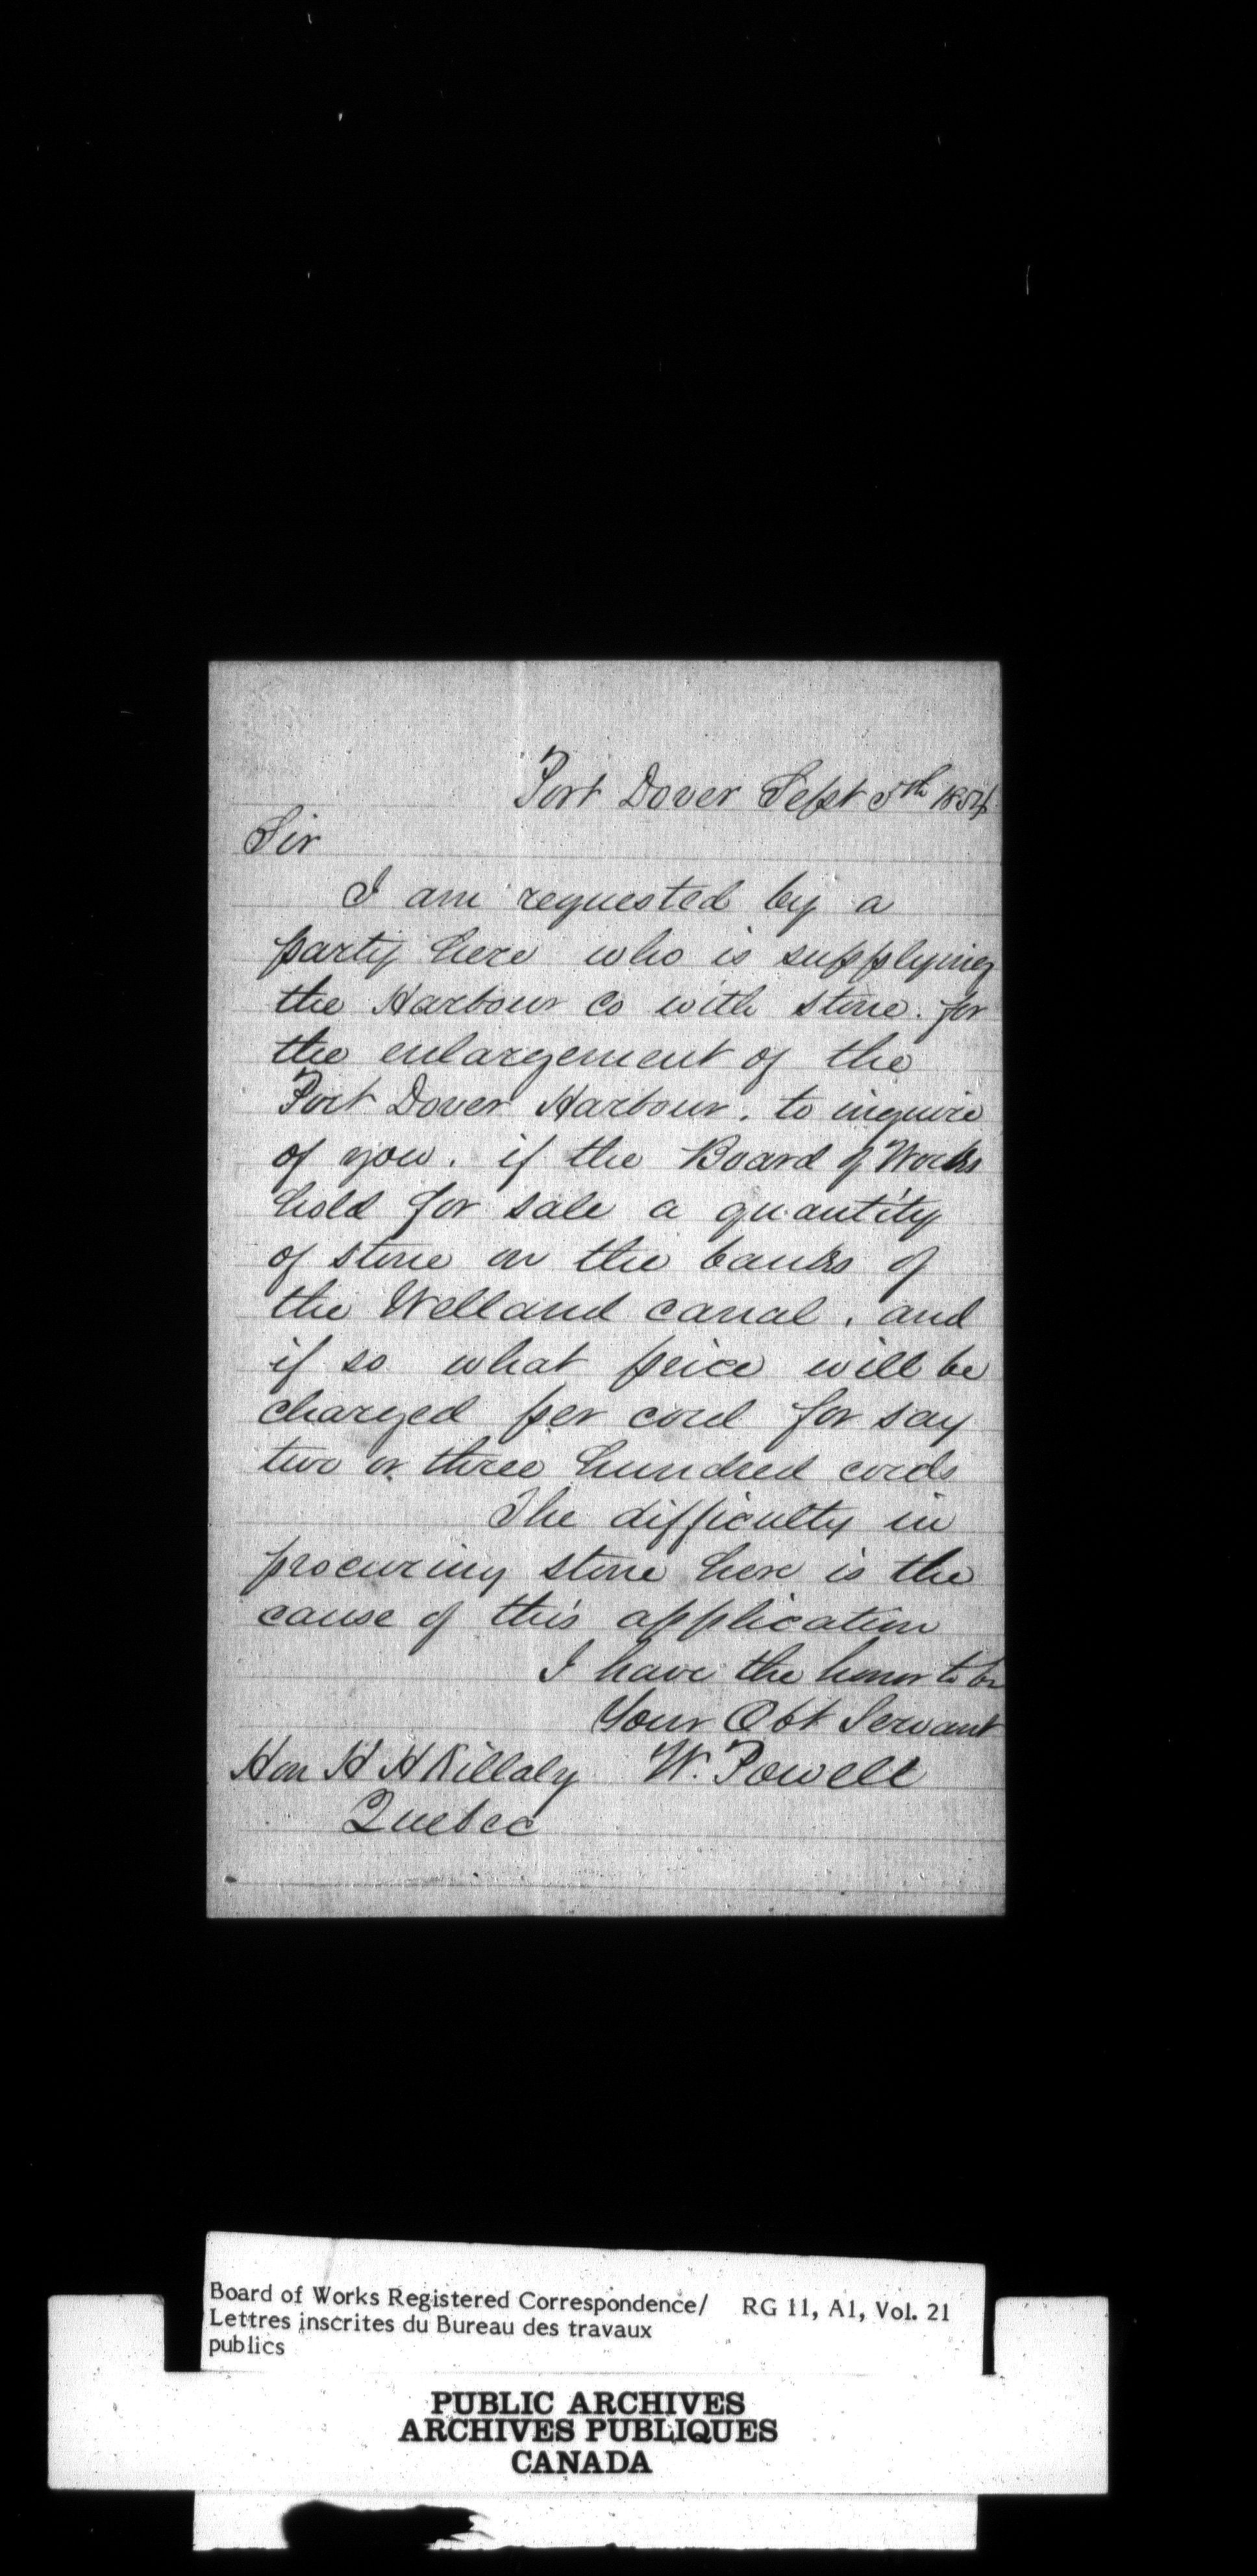 Port Dover Sept 5th 1854
Sir
I am requested by a
party here who is supplying
the Harbour Co with stone. for
the enlargement of the
Port Dover Harbour. to inquire
of you. if the Board of Works
hold for sale a quantity
of stone on the banks of
the Welland canal. and
if so what price will be
charged per cord for say
two or three hundred cords
The difficulty in
procuring stone here is the
cause of this application
I have the honor to be
Your Obt Servant
Hon H H Killaly W. Powell
Quebec
Board of Works Registered Correspondence/ RG 11, A1, Vol. 21
Lettres inscrites du Bureau des travaux
publics
PUBLIC ARCHIVES
ARCHIVES PUBLIQUES
CANADA